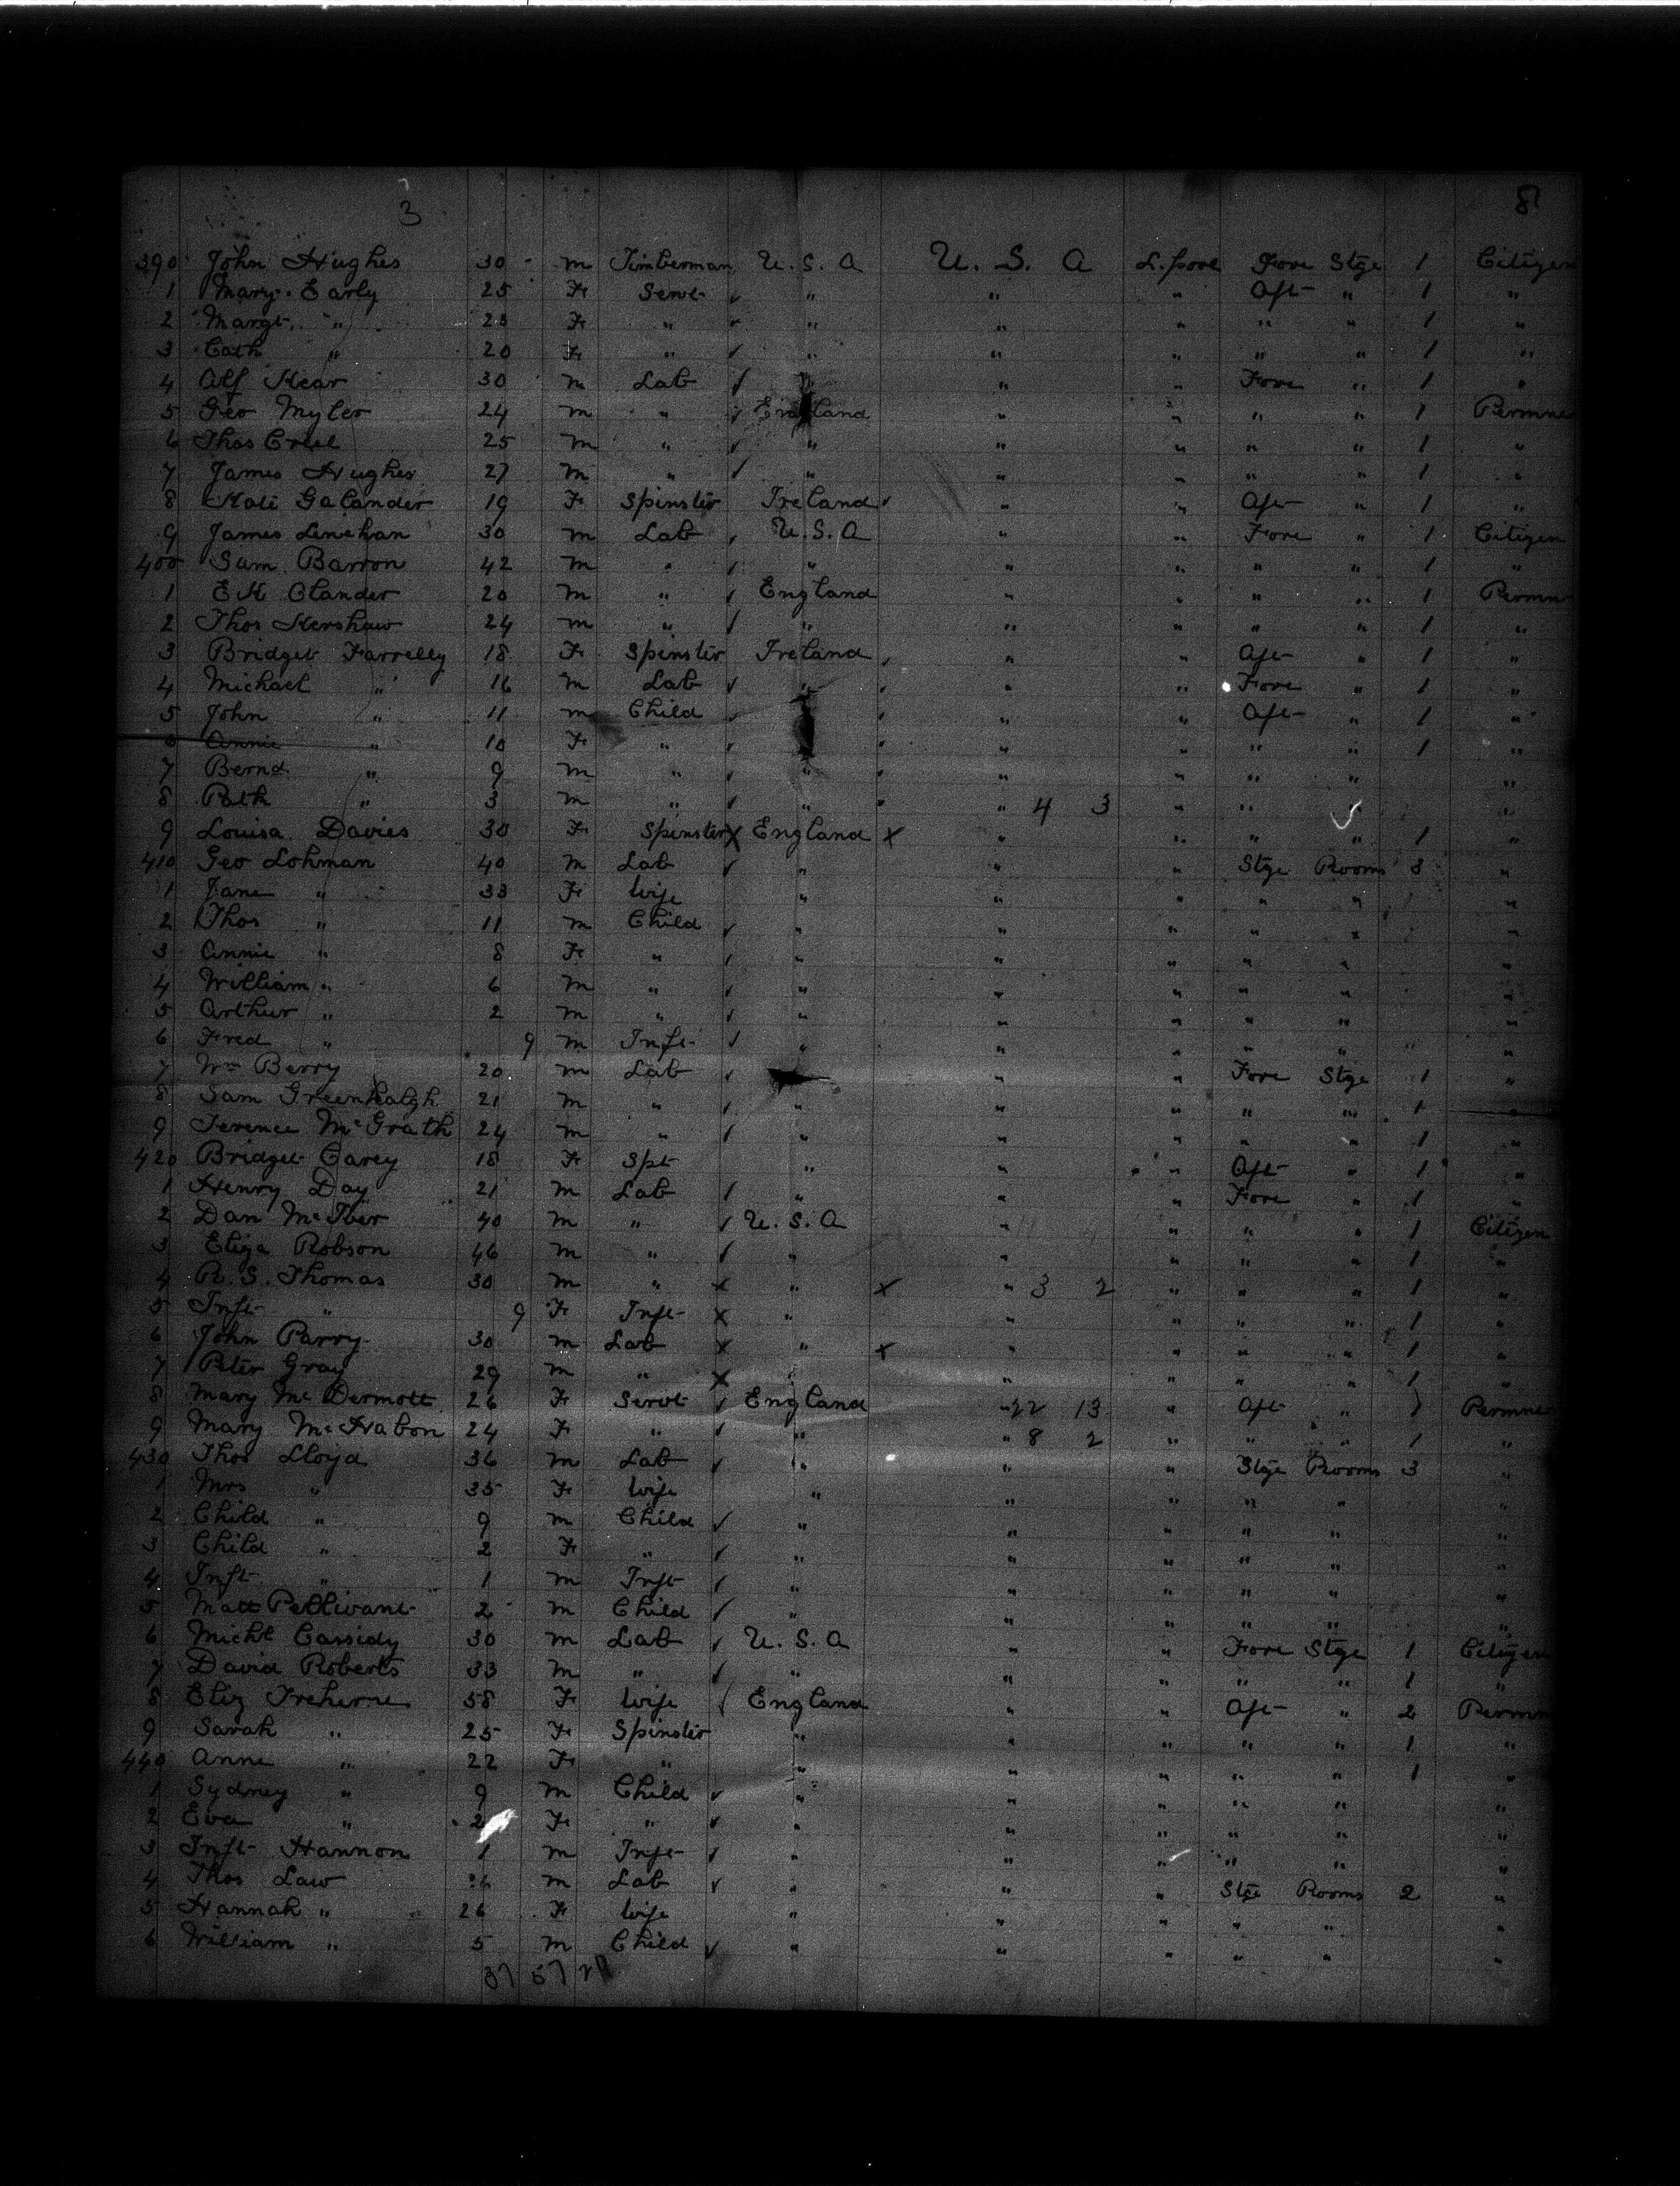 3 8
390 John Hughes 30 m Timberman U.S.A U.S.A L.pool Fore Stge 1 Citizen
1 Mary Early 25 F Servt " " " Aft " 1 "
2 Margt " 23 F " " " " " " 1 "
3 Cath " 20 F " " " " " " 1 "
4 Alf Kear 30 m Lab " " " Fore " 1 "
5 Geo Myler 24 m " England " " " " 1 Permne
6 Thos 25 m " " " " " " 1 "
7 James Hughes 27 m " " " " " " 1 "
8 Kate Galander 19 F Spinster Ireland " " Aft " 1 "
9 James Lenehan 30 m Lab U.S.A " " Fore " 1 Citizen
400 Sam Barron 42 m " " " " " " 1 "
1 Clander 20 m " England " " " " 1 Permn
2 Thos Kershaw 24 m " " " " " " 1 "
3 Bridget Farrelly 18 F Spinster Ireland " " Aft " 1 "
4 Michael " 16 m Lab " " " Fore " 1 "
5 John " 11 m Child " " " Aft " 1 "
6 Annie " 10 F " " " " " " 1 "
7 Bernd " 9 m " " " " " " "
8 Patk " 3 m " " " 4 3 " " "
9 Louisa Davies 30 F Spinster X England X " " " " 1 "
410 Geo Lohman 40 m Lab " " " Stge Rooms 3 "
1 Jane " 33 F Wife " " " " " "
2 Thos " 11 m Child " " " " " "
3 Annie " 8 F " " " " " " "
4 William " 6 m " " " " " " "
5 Arthur " 2 m " " " " " " "
6 Fred " 9 m Inft " " " " " "
7 Wm Berry 20 m Lab " " Fore Stge 1 "
8 Sam Greenhalgh 21 m " " " " " " 1 "
9 Terence McGrath 24 m " " " " " " 1 "
420 Bridget Carey 18 F Spt " " " Aft " 1 "
1 Henry Day 21 m Lab " " " Fore " 1 "
2 Dan 40 m " U.S.A " " " " 1 Citizen
3 Eliza Robson 46 m " " " " " " 1 "
4 R.S. Thomas 30 m " X " X " 3 2 " " " 1 "
5 Inft " 9 F Inft X " " " " " 1 "
6 John Parry 30 m Lab X " X " " " " 1 "
7 Peter Gray 29 m " X " " " " 1 "
8 Mary McDermott 26 F Servt England " 22 13 " Aft " 1 Permne
9 Mary McHabon 24 F " " " 8 2 " " " 1 "
430 Thos Lloyd 36 m Lab " " " Stge Rooms 3 "
1 Mrs " 35 F Wife " " " " " "
2 Child " 9 m Child " " " " " "
3 Child " 2 F " " " " " " "
4 Inft " 1 m Inft " " " " " "
5 Matt 2 m Child " " " " " "
6 Michl Cassidy 30 m Lab U.S.A " " Fore Stge 1 Citizen
7 David Roberts 33 m " " " " " " 1 "
8 Eliz Treherne 58 F Wife England " " Aft " 2 Permn
9 Sarah " 25 F Spinster " " " " " 1 "
440 Anne " 22 F " " " " " " 1 "
1 Sydney " 9 m Child " " " " " "
2 Eva " 2 F " " " " " " "
3 Inft Hannon 1 m Inft " " " " " "
4 Thos Law m Lab " " " Stge Rooms 2 "
5 Hannah " 26 F Wife " " " " " "
6 William " 5 m Child " " " " " "
37 57